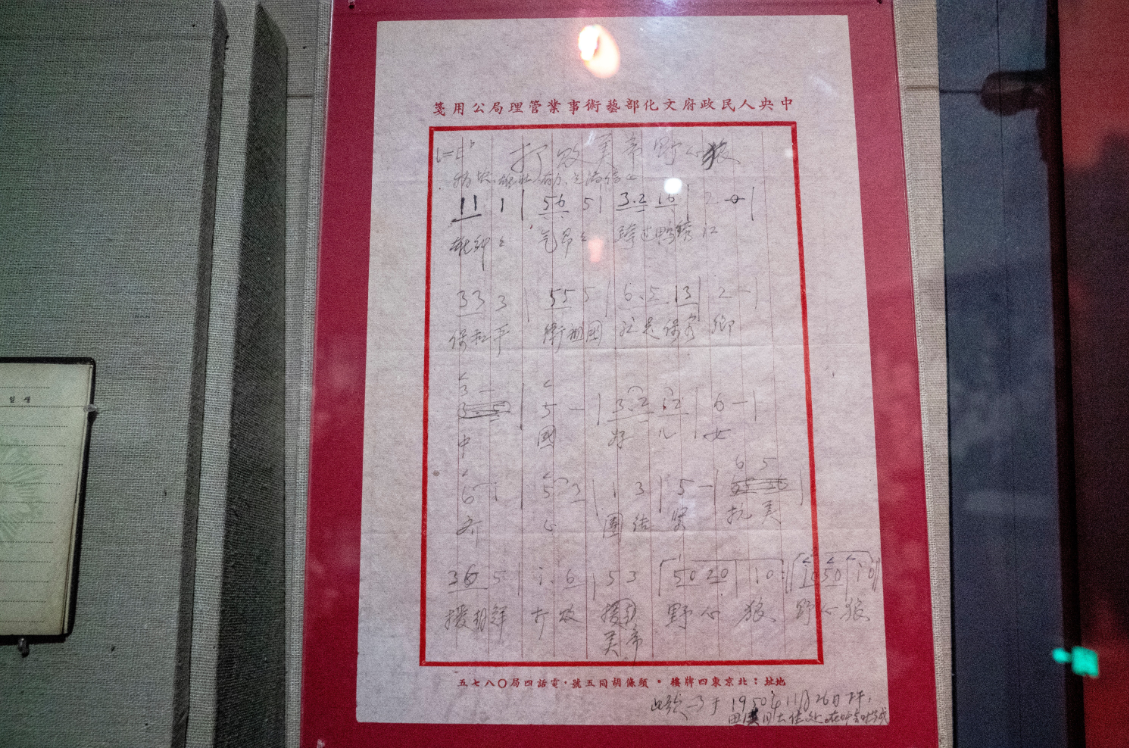 中央人民政府文化部藝術事業管理局公用箋
打败美帝野心狼
11 1 | 56 5 | 3.2 16 | 2 - |
雄赳赳 气昂昂 跨过鸭绿江
33 3 | 55 5 | 6.5 13 | 2 - |
保和平 衛祖国 就是保家鄉
3 - | 5 - | 3.2 12 | 6 - |
中 國 好 儿 女
6 1 | 5 2 | 1 3 | 5 - | 6 5 |
齐 心 團结 紧 抗美
36 5 | 1. 6 | 53 | 50 20 | 10 :|| 10 50 | 10 ||
援朝鮮 打败 美帝 野心 狼 野心狼
地址：北京東四牌樓·頭條胡同五號·電話四局〇八七五
此歌写于1950年11月26日